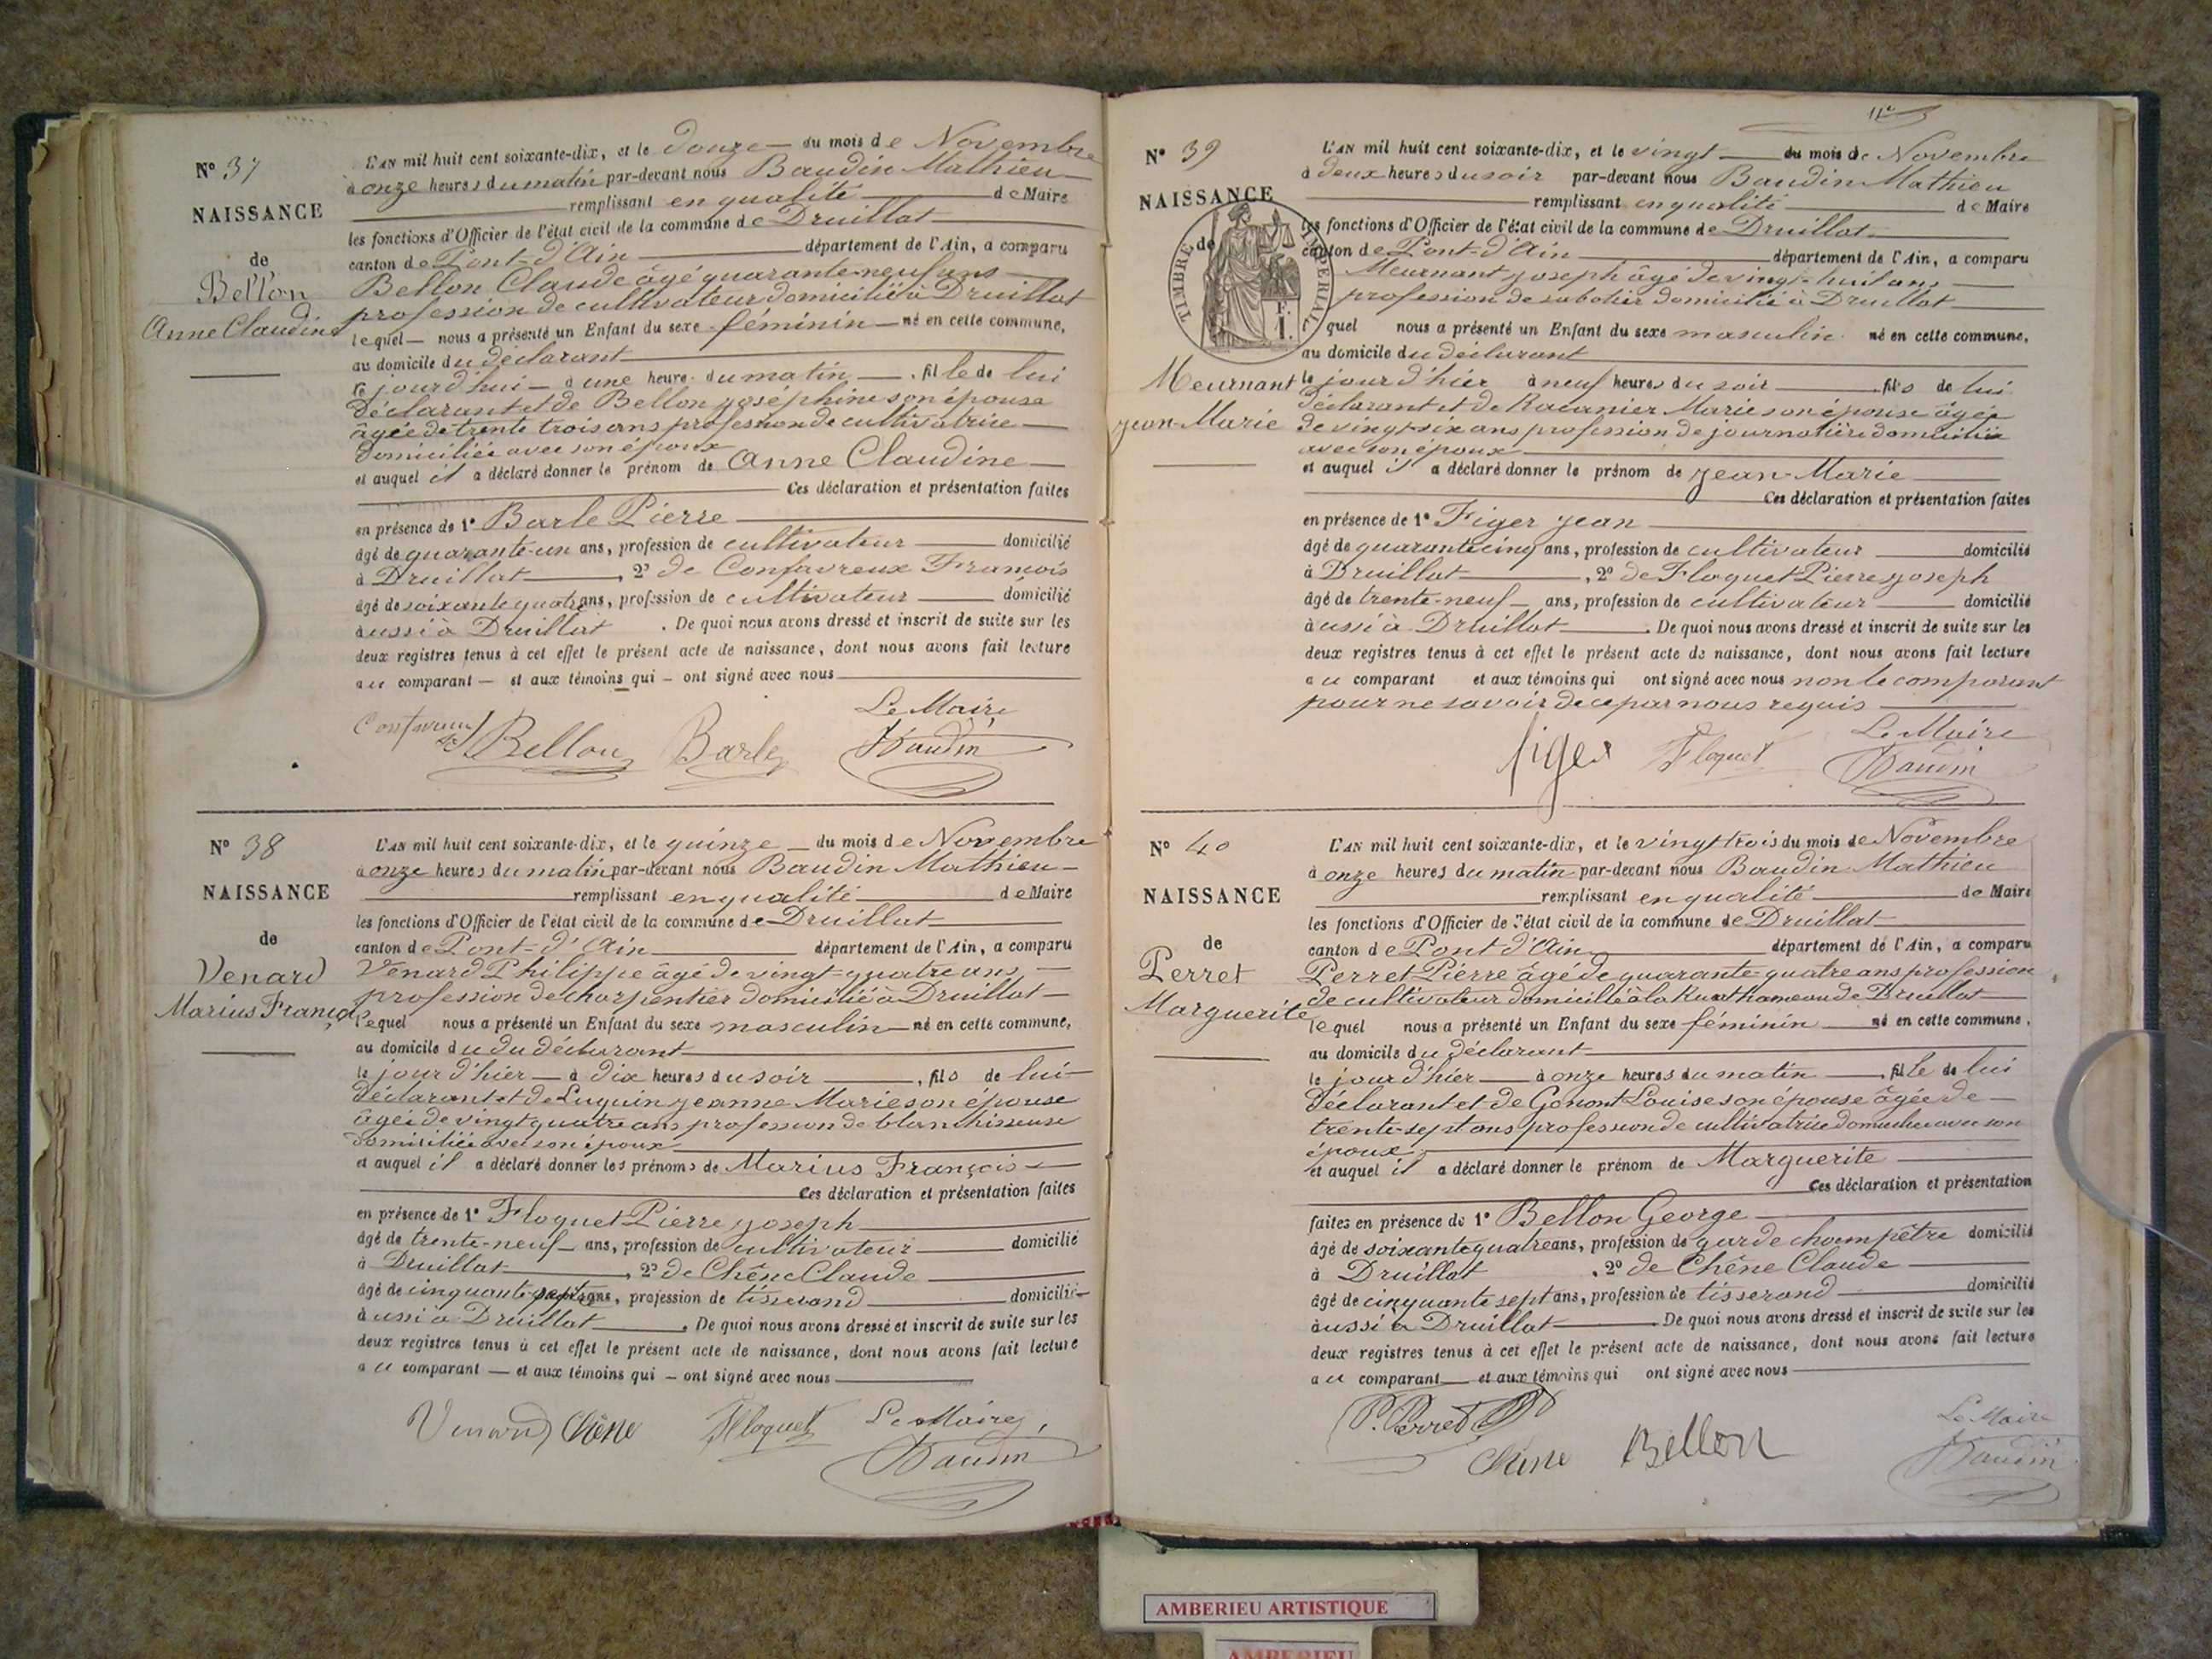 N° 37
NAISSANCE
de
Bellon
Anne Claudine
L'AN mil huit cent soixante-dix, et le douze du mois de Novembre
à onze heures du matin par-devant nous Baudin Mathieu
remplissant en qualité de Maire
les fonctions d'Officier de l'état civil de la commune de Druillat
canton de Pont-d'Ain département de l'Ain, a comparu
Bellon Claude âgé quarante-neuf ans
profession de cultivateur domicilié à Druillat
lequel nous a présenté un Enfant du sexe féminin né en cette commune,
au domicile du déclarant
le jourd'hui à une heure du matin, fille de lui
déclarant et de Bellon joséphine son épouse
âgée de trente trois ans profession de cultivatrice
domiciliée avec son époux
et auquel il a déclaré donner le prénom de Anne Claudine
Ces déclaration et présentation faites
en présence de 1° Barle Pierre
âgé de quarante-un ans, profession de cultivateur domicilié
à Druillat, 2° de Confavreux François
âgé de soixante quatre ans, profession de cultivateur domicilié
aussi à Druillat. De quoi nous avons dressé et inscrit de suite sur les
deux registres tenus à cet effet le présent acte de naissance, dont nous avons fait lecture
au comparant et aux témoins qui ont signé avec nous
Le Maire
Confavreux Bellon Barle Baudin
N° 38
NAISSANCE
de
Venard
Marius François
L'AN mil huit cent soixante-dix, et le quinze du mois de Novembre
à onze heures du matin par-devant nous Baudin Mathieu
remplissant en qualité de Maire
les fonctions d'Officier de l'état civil de la commune de Druillat
canton de Pont-d'Ain département de l'Ain, a comparu
Venard Philippe âgé de vingt-quatre ans
profession de charpentier domicilié à Druillat
lequel nous a présenté un Enfant du sexe masculin né en cette commune,
au domicile du du déclarant
le jour d'hier à dix heures du soir, fils de lui
déclarant et de Luquin jeanne Marie son épouse
âgée de vingt quatre ans profession de blanchisseuse
domiciliée avec son époux
et auquel il a déclaré donner les prénoms de Marius François
Ces déclaration et présentation faites
en présence de 1° Floquet Pierre joseph
âgé de trente-neuf ans, profession de cultivateur domicilié
à Druillat, 2° de Chêne Claude
âgé de cinquante-sept ans, profession de tisserand domicilié
aussi à Druillat. De quoi nous avons dressé et inscrit de suite sur les
deux registres tenus à cet effet le présent acte de naissance, dont nous avons fait lecture
au comparant et aux témoins qui ont signé avec nous
Venard Chêne Floquet Le Maire
Baudin
11e
N° 39
NAISSANCE
de
TIMBRE IMPERIAL
F.
1.
Meurnant
jean-Marie
L'AN mil huit cent soixante-dix, et le vingt du mois de Novembre
à deux heures du soir par-devant nous Baudin Mathieu
remplissant en qualité de Maire
les fonctions d'Officier de l'état civil de la commune de Druillat
canton de Pont-d'Ain département de l'Ain, a comparu
Meurnant joseph âgé de vingt-huit ans
profession de sabotier domicilié à Druillat
quel nous a présenté un Enfant du sexe masculin né en cette commune,
au domicile du déclarant
le jour d'hier à neuf heures du soir fils de lui
déclarant et de Marie son épouse âgée
de vingt-six ans profession de journalière domiciliée
avec son époux
et auquel il a déclaré donner le prénom de jean-Marie
Ces déclaration et présentation faites
en présence de 1° Figer jean
âgé de quarante cinq ans, profession de cultivateur domicilié
à Druillat, 2° de Floquet Pierre joseph
âgé de trente-neuf ans, profession de cultivateur domicilié
aussi à Druillat. De quoi nous avons dressé et inscrit de suite sur les
deux registres tenus à cet effet le présent acte de naissance, dont nous avons fait lecture
au comparant et aux témoins qui ont signé avec nous non le comparant
pour ne savoir de ce par nous requis
Le Maire
figer Floquet Baudin
N° 40
NAISSANCE
de
Perret
Marguerite
L'AN mil huit cent soixante-dix, et le vingt trois du mois de Novembre
à onze heures du matin par-devant nous Baudin Mathieu
remplissant en qualité de Maire
les fonctions d'Officier de l'état civil de la commune de Druillat
canton de Pont d'Ain département de l'Ain, a comparu
Perret Pierre âgé de quarante-quatre ans profession
de cultivateur domicilié à la hameau de Druillat
lequel nous a présenté un Enfant du sexe féminin né en cette commune,
au domicile du déclarant
le jour d'hier à onze heures du matin, fille de lui
déclarant et de Gonont Louise son épouse âgée de
trente-sept ans profession de cultivatrice domiciliée avec son
époux
et auquel il a déclaré donner le prénom de Marguerite
Ces déclaration et présentation
faites en présence de 1° Bellon George
âgé de soixante quatre ans, profession de garde champêtre domicilié
à Druillat, 2° de Chêne Claude
âgé de cinquante sept ans, profession de tisserand domicilié
aussi à Druillat. De quoi nous avons dressé et inscrit de suite sur les
deux registres tenus à cet effet le présent acte de naissance, dont nous avons fait lecture
au comparant et aux témoins qui ont signé avec nous
P. Perret Le Maire
Chêne Bellon Baudin
AMBERIEU ARTISTIQUE
AMBERIEU